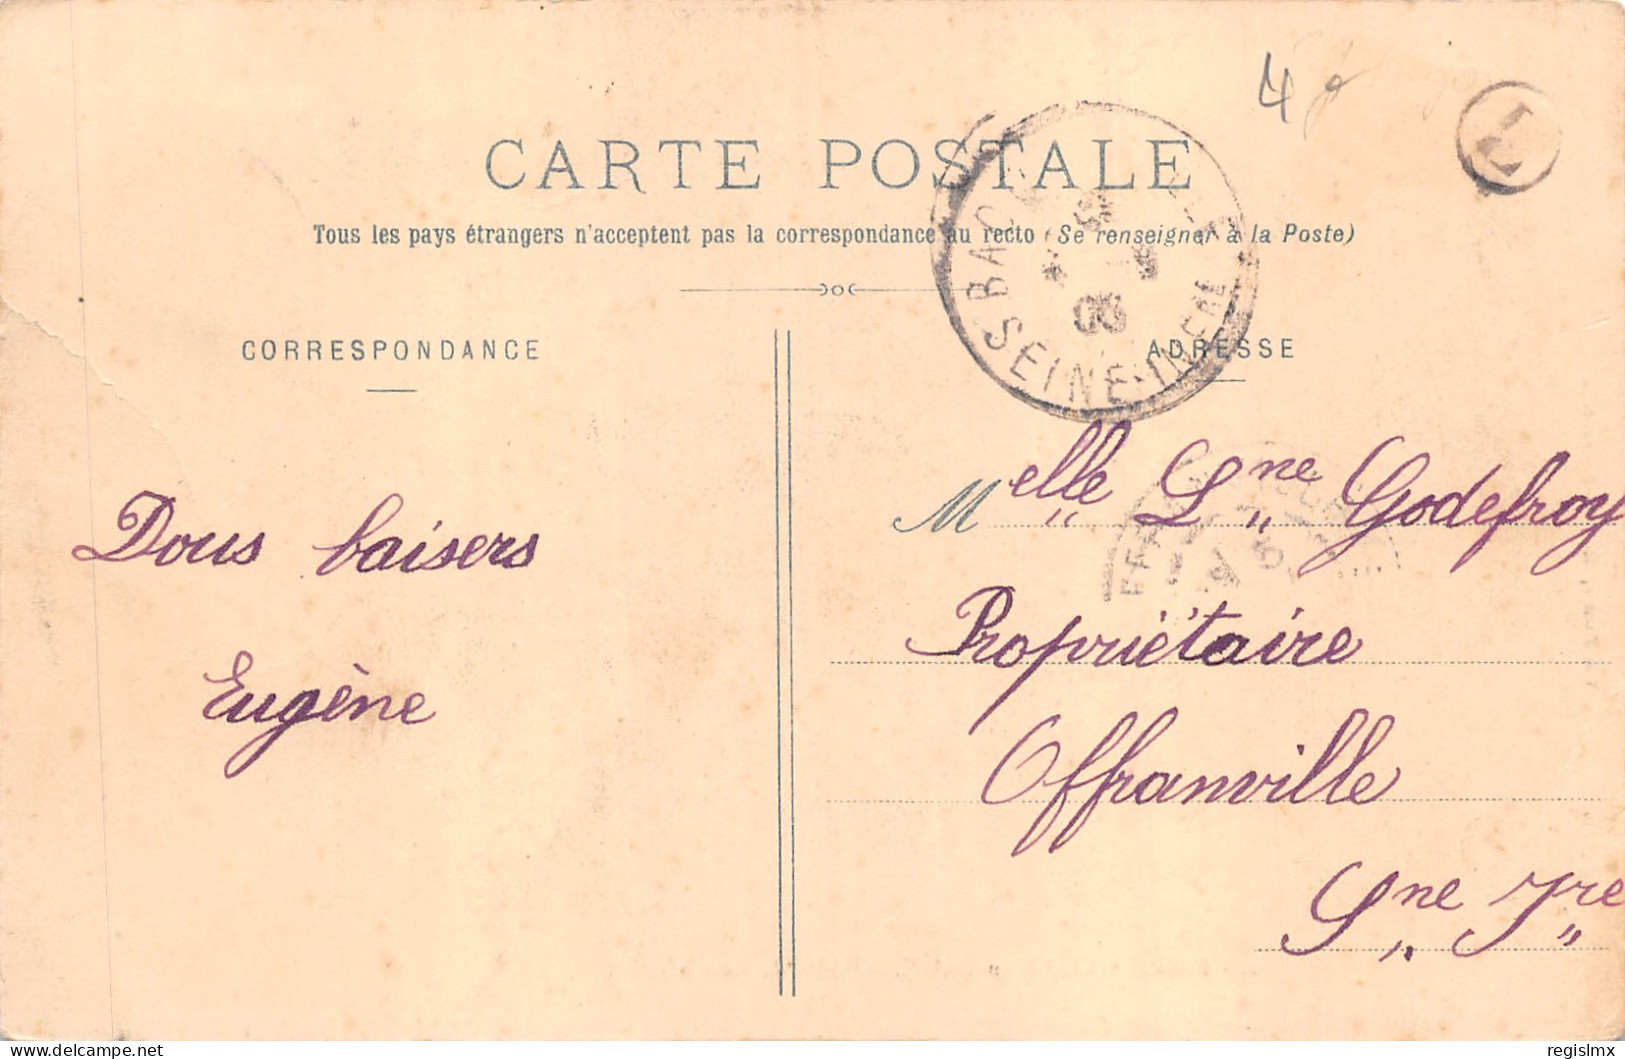 4
L
CARTE POSTALE
Tous les pays étrangers n'acceptent pas la correspondance au recto (Se renseigner à la Poste)
CORRESPONDANCE
ADRESSE
BAC
SEINE-INFRE
Dous baisers
Eugène
Melle Lne Godefroy
Propriétaire
Offranville
Sne Jre
delcampe.net
regislmx